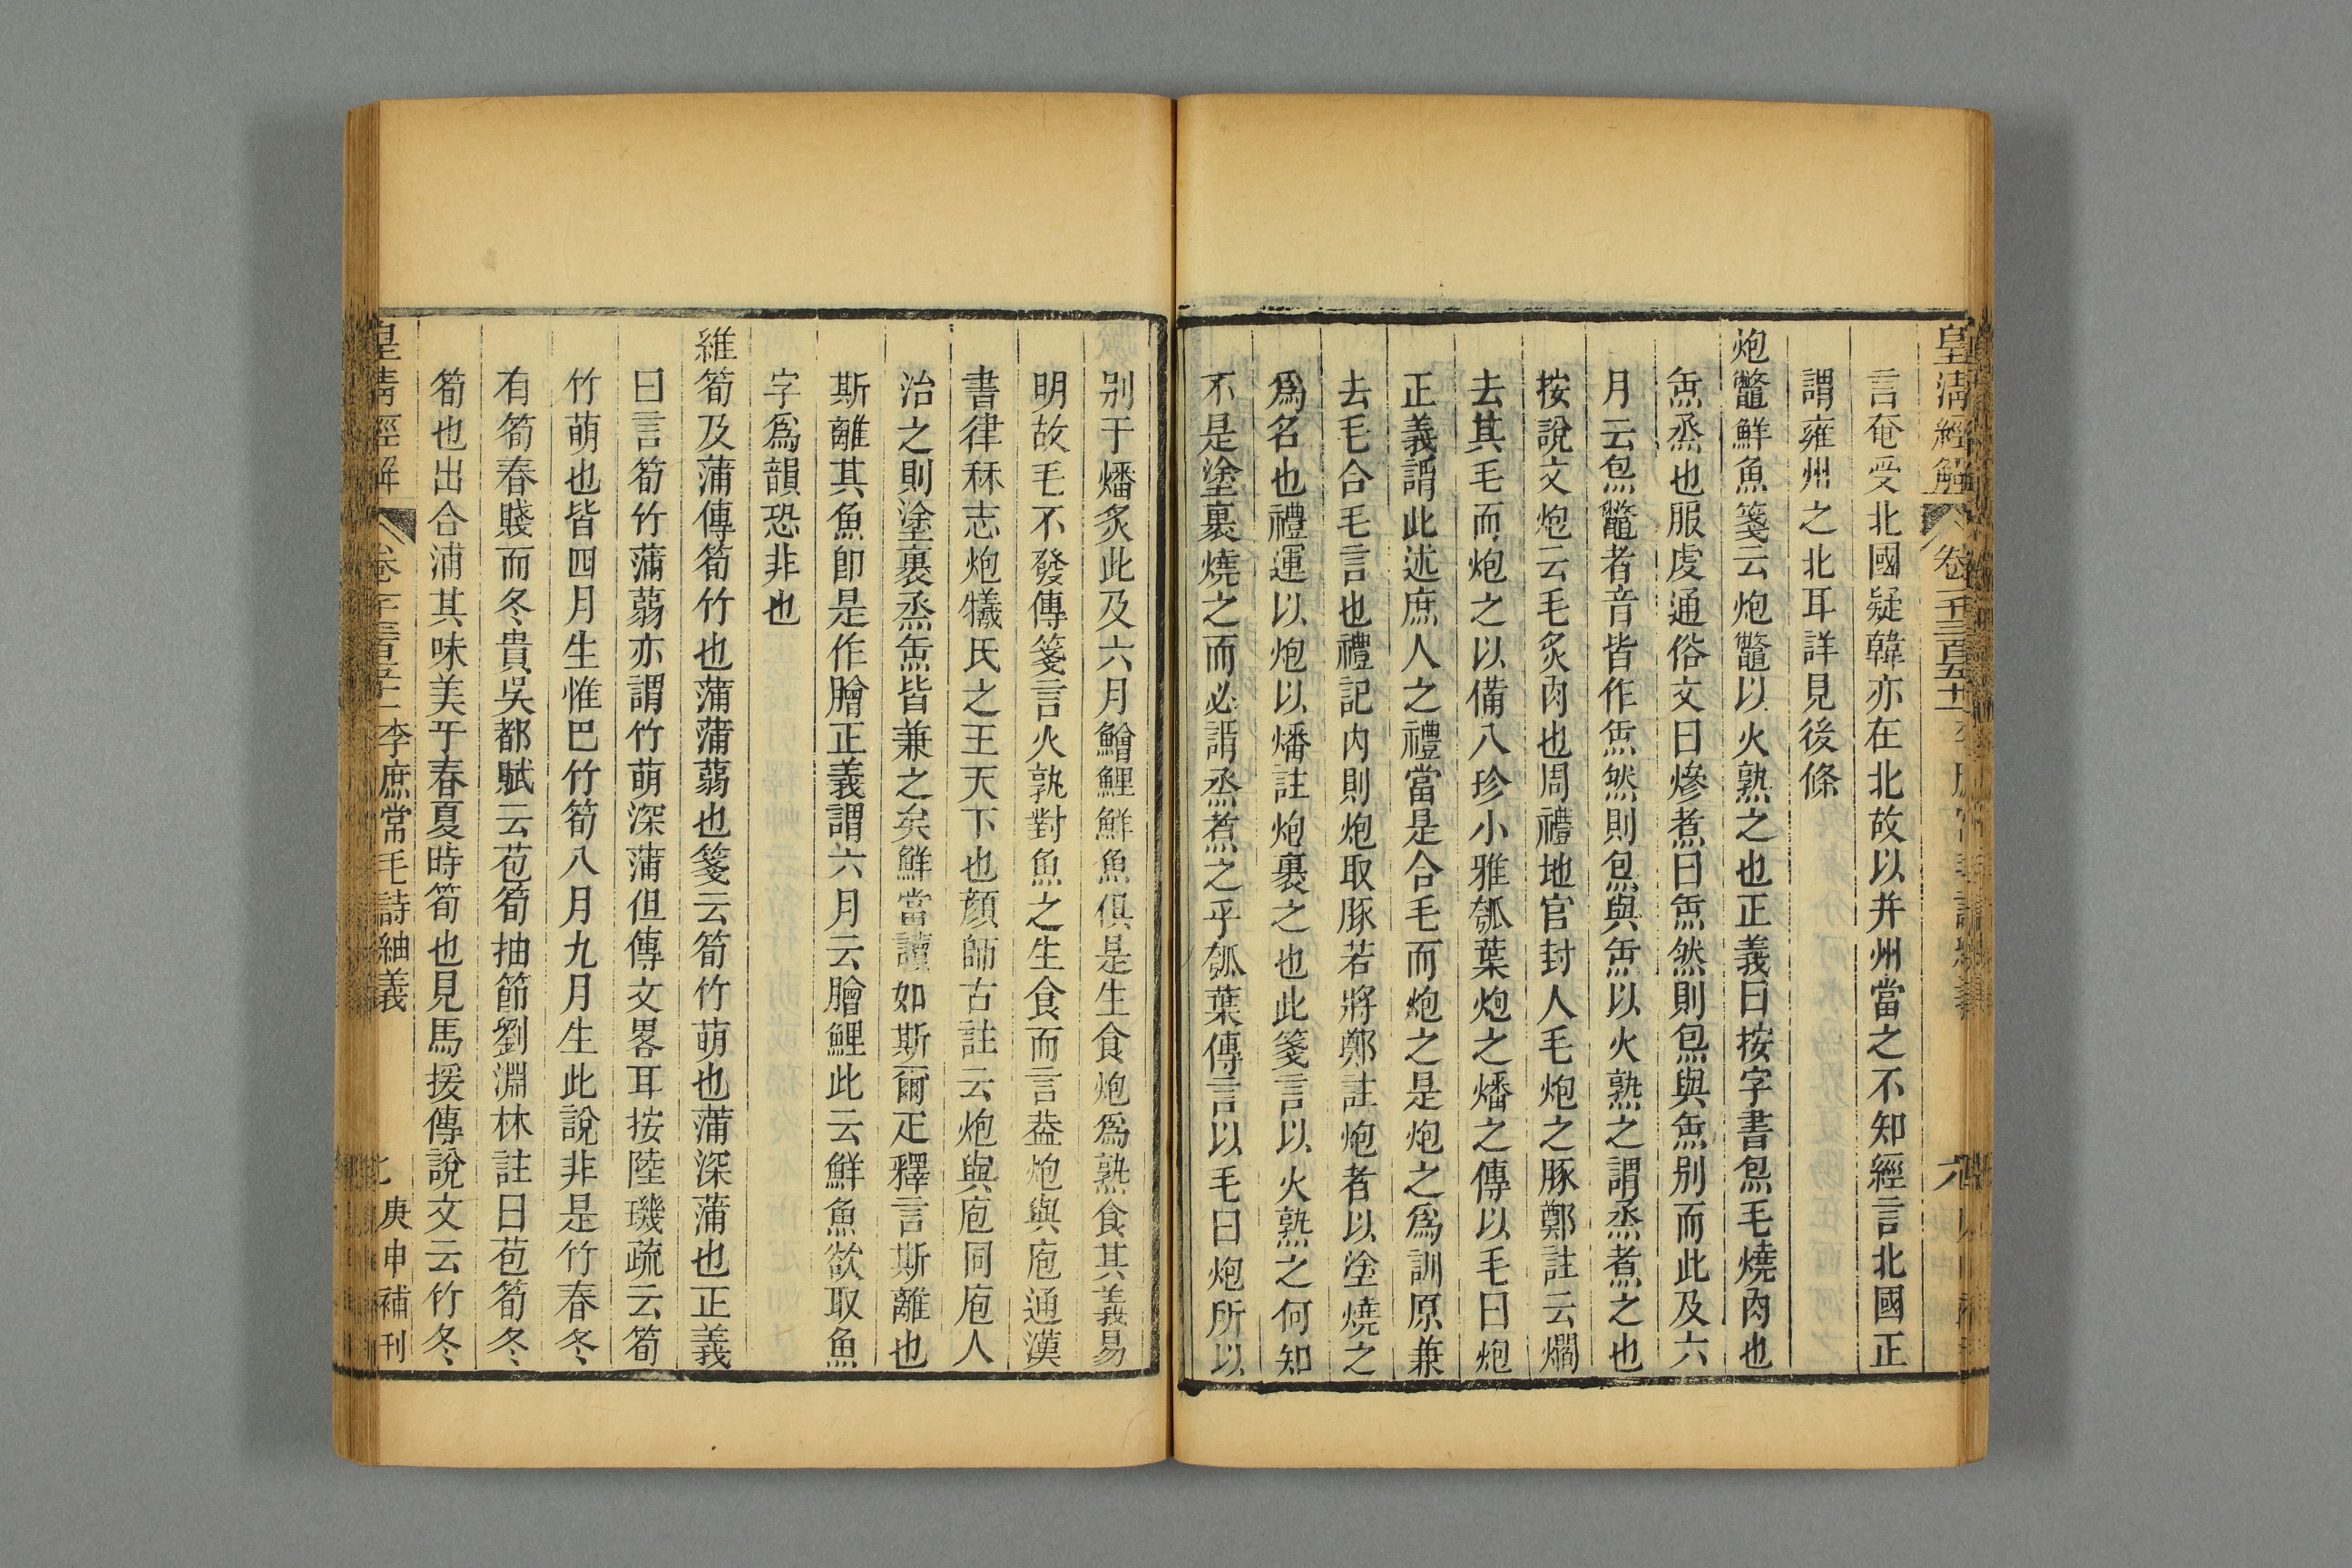 皇清經解 卷一千三百五十一
言奄受北國疑韓亦在北故以并州當之不知經言北國正
謂雍州之北耳詳見後條
炮鼈鮮魚箋云炮鼈以火熟之也正義曰按字書炰毛燒肉也
缹烝也服虔通俗文曰燥煮曰缹然則炰與缹别而此及六
月云炰鼈者音皆作缹然則炰與缹以火熟之謂烝煮之也
按說文炮云毛炙肉也周禮地官封人毛炮之豚鄭註云爓
去其毛而炮之以備八珍小雅瓠葉炮之燔之傳以毛曰炮
正義謂此述庶人之禮當是合毛而炮之是炮之爲訓原兼
去毛合毛言也禮記内則炮取豚若將鄭註炮者以塗燒之
爲名也禮運以炮以燔註炮裹之也此箋言以火熟之何知
不是塗裹燒之而必謂烝煮之乎瓠葉傳言以毛曰炮所以
别于燔炙此及六月鱠鯉鮮魚俱是生食炮爲熟食其義易
明故毛不發傳箋言火孰對魚之生食而言葢炮與庖通漢
書律秝志炮犧氏之王天下也顔師古註云炮與庖同庖人
治之則塗裹烝缹皆兼之矣鮮當讀如斯爾疋釋言斯離也
斯離其魚卽是作膾正義謂六月云膾鯉此云鮮魚欲取魚
字爲韻恐非也
維筍及蒲傳筍竹也蒲蒲蒻也箋云筍竹萌也蒲深蒲也正義
曰言筍竹蒲蒻亦謂竹萌深蒲但傳文畧耳按陸璣疏云筍
竹萌也皆四月生惟巴竹筍八月九月生此說非是竹春冬
有筍春賤而冬貴吳都賦云苞筍抽節劉淵林註曰苞筍冬
筍也出合浦其味美于春夏時筍也見馬援傳說文云竹冬
皇清經解 卷一千三百五十一 李庶常毛詩紬義 七 庚申補刊